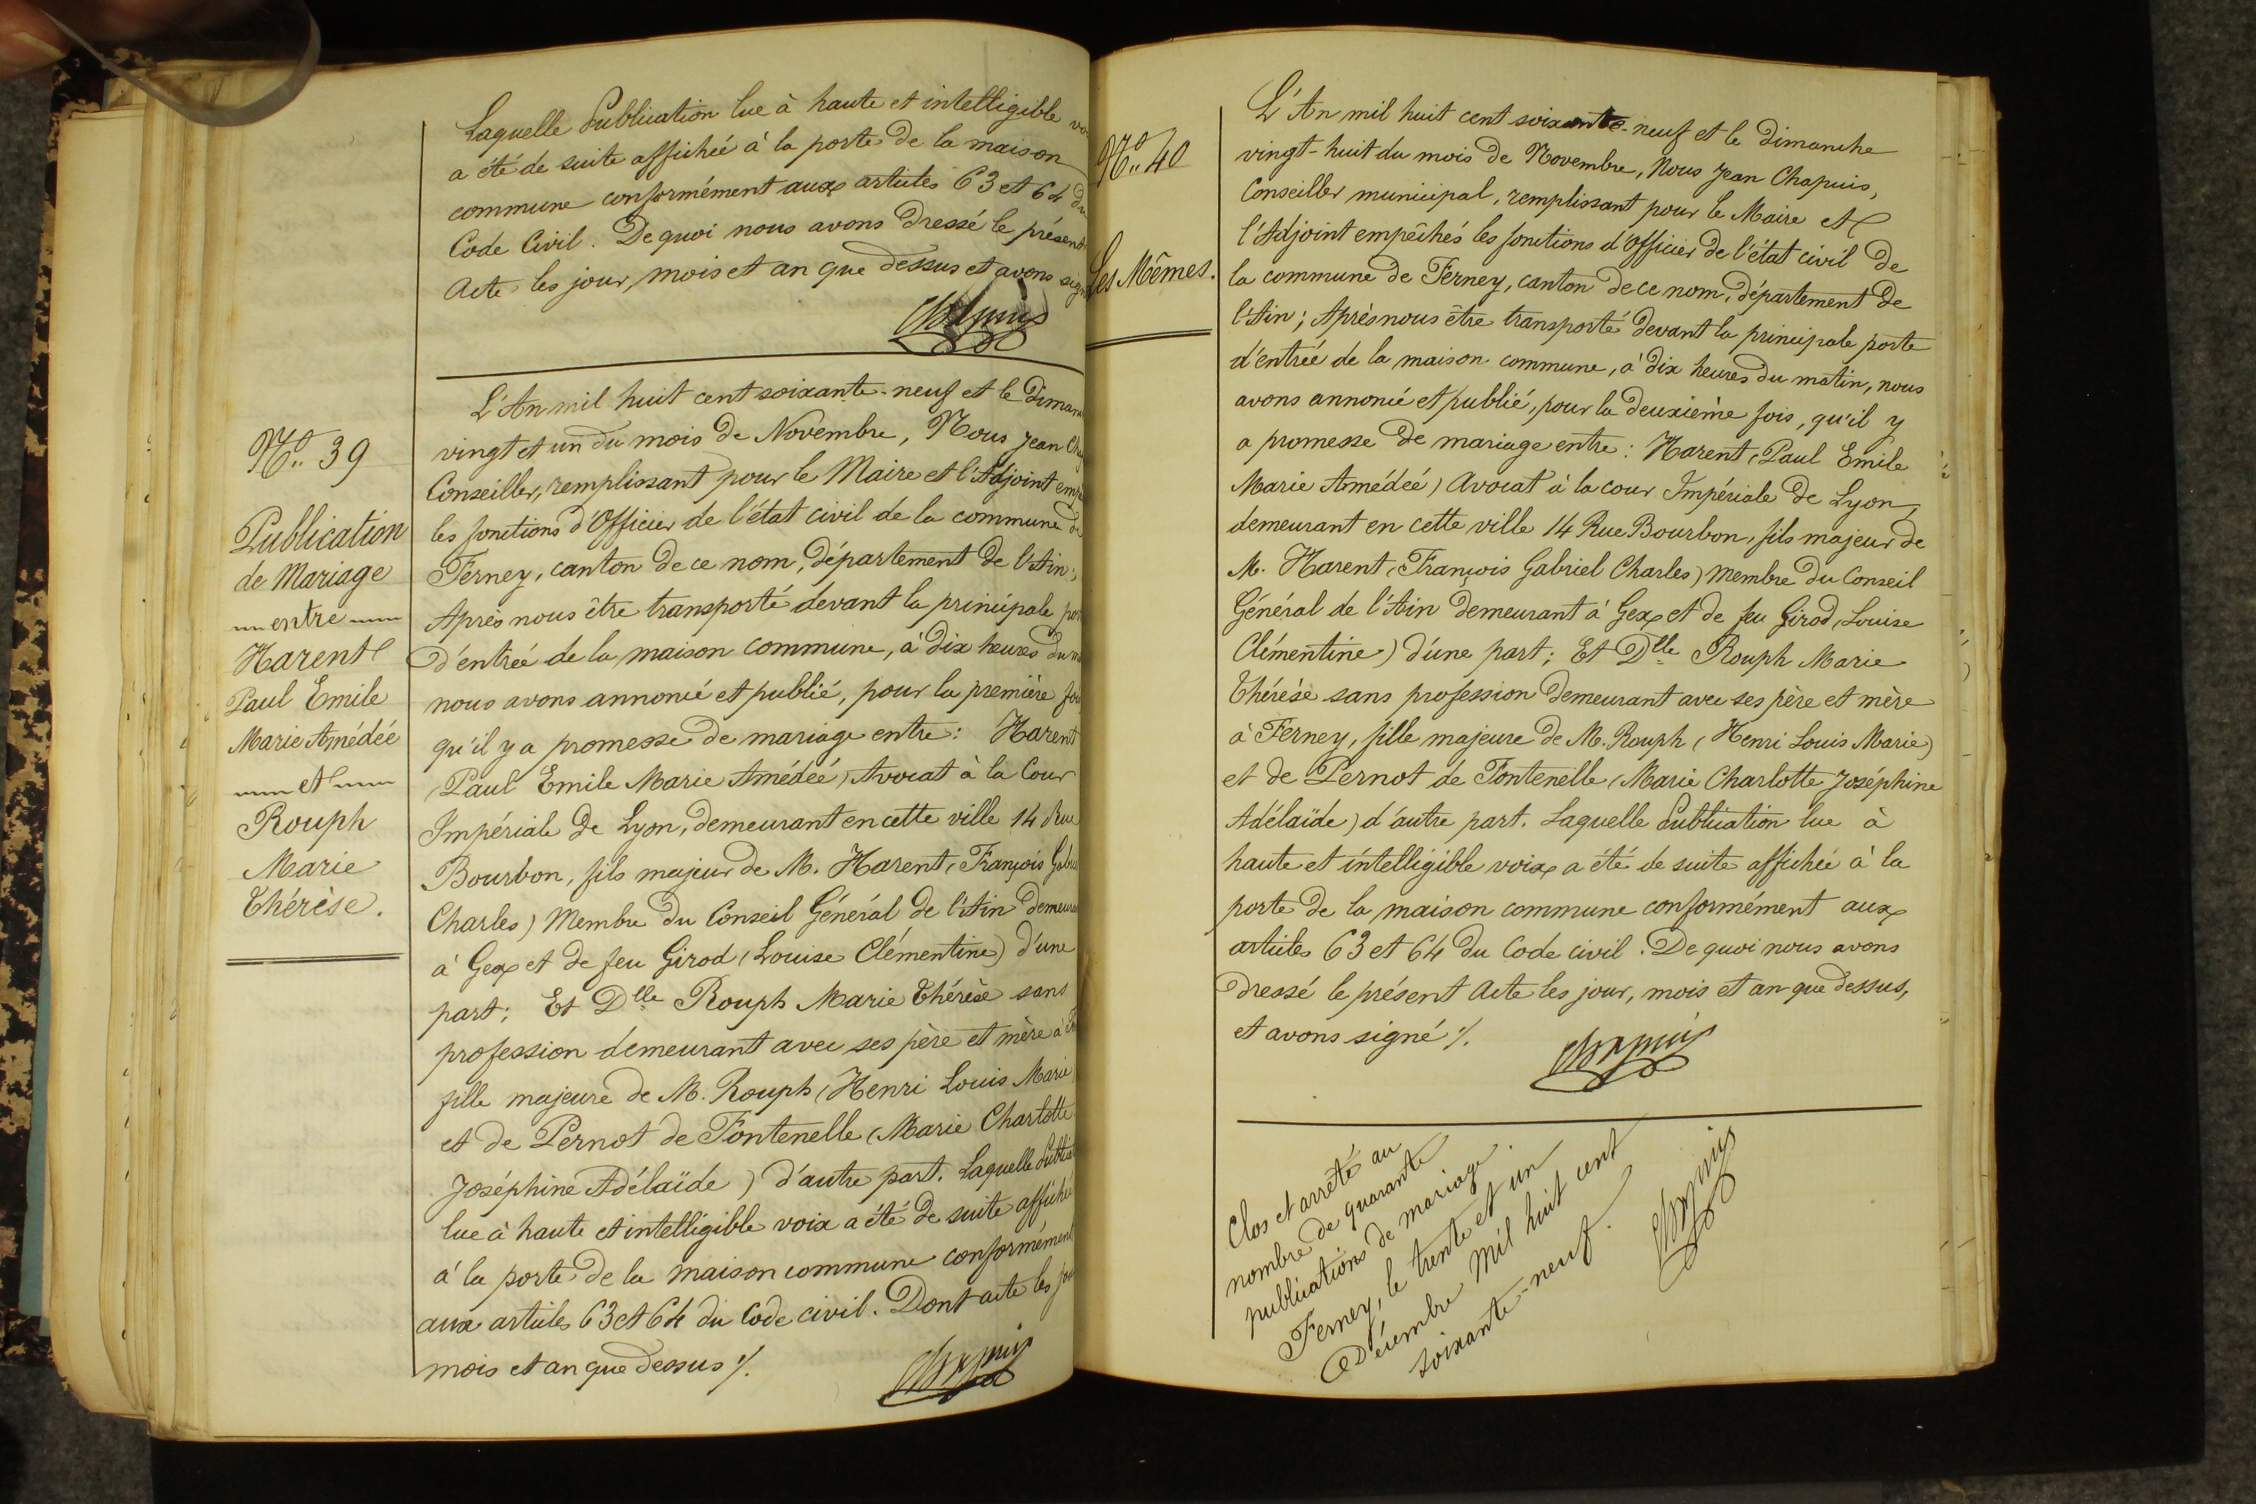 Laquelle Publication lue à haute et intelligible
a été de suite affichée à la porte de la maison
commune conformément aux articles 63 et 64 du
Code Civil. De quoi nous avons dressé le présent
Acte les jour, mois et an que dessus et avons
Chapuis
No. 39
Publication
de Mariage
entre
Harent
Paul Emile
Marie Amédée
et
Rouph
Marie
Thérèse.
L'An mil huit cent soixante-neuf et le
vingt et un du mois de Novembre, Nous Jean
Conseiller, remplissant pour le Maire et l'Adjoint
les fonctions d'Officier de l'état civil de la commune de
Ferney, canton de ce nom, département de l'Ain;
Après nous être transporté devant la principale
d'entrée de la maison commune, à dix heures du
nous avons annoncé et publié, pour la première
qu'il y a promesse de mariage entre: Harent
(Paul Emile Marie Amédée) Avocat à la Cour
Impériale de Lyon, demeurant en cette ville 14 Rue
Bourbon, fils majeur de M. Harent (François
Charles) Membre du Conseil Général de l'Ain
à Gex et de feu Girod (Louise Clémentine) d'une
part; Et Dlle Rouph Marie Thérèse sans
profession demeurant avec ses père et mère à
fille majeure de M. Rouph (Henri Louis Marie
et de Pernot de Fontenelle (Marie Charlotte
Joséphine Adélaïde) d'autre part. Laquelle
lue à haute et intelligible voix a été de suite affichée
à la porte de la maison commune conformément
aux articles 63 et 64 du Code civil. Dont acte les
mois et an que dessus ./.
Chapuis
No. 40
Les Mêmes.
L'An mil huit cent soixante-neuf et le dimanche
vingt-huit du mois de Novembre, Nous Jean Chapuis,
Conseiller municipal, remplissant pour le Maire et
l'Adjoint empêchés les fonctions d'Officier de l'état civil de
la commune de Ferney, canton de ce nom, département de
l'Ain; Après nous être transporté devant la principale porte
d'entrée de la maison commune, à dix heures du matin, nous
avons annoncé et publié, pour la deuxième fois, qu'il y
a promesse de mariage entre: Harent (Paul Emile
Marie Amédée) Avocat à la cour Impériale de Lyon,
demeurant en cette ville 14 Rue Bourbon, fils majeur de
M. Harent (François Gabriel Charles) membre du Conseil
Général de l'Ain demeurant à Gex et de feu Girod (Louise
Clémentine) d'une part; Et Dlle Rouph Marie
Thérèse sans profession demeurant avec ses père et mère
à Ferney, fille majeure de M. Rouph (Henri Louis Marie)
et de Pernot de Fontenelle (Marie Charlotte Joséphine
Adélaïde) d'autre part. Laquelle Publication lue à
haute et intelligible voix a été de suite affichée à la
porte de la maison commune conformément aux
articles 63 et 64 du Code civil. De quoi nous avons
dressé le présent Acte les jour, mois et an que dessus,
et avons signé ./.
Chapuis
Clos et arrêté au
nombre de quarante
publications de mariage.
Ferney, le trente et un
Décembre mil huit cent
soixante-neuf.
Chapuis